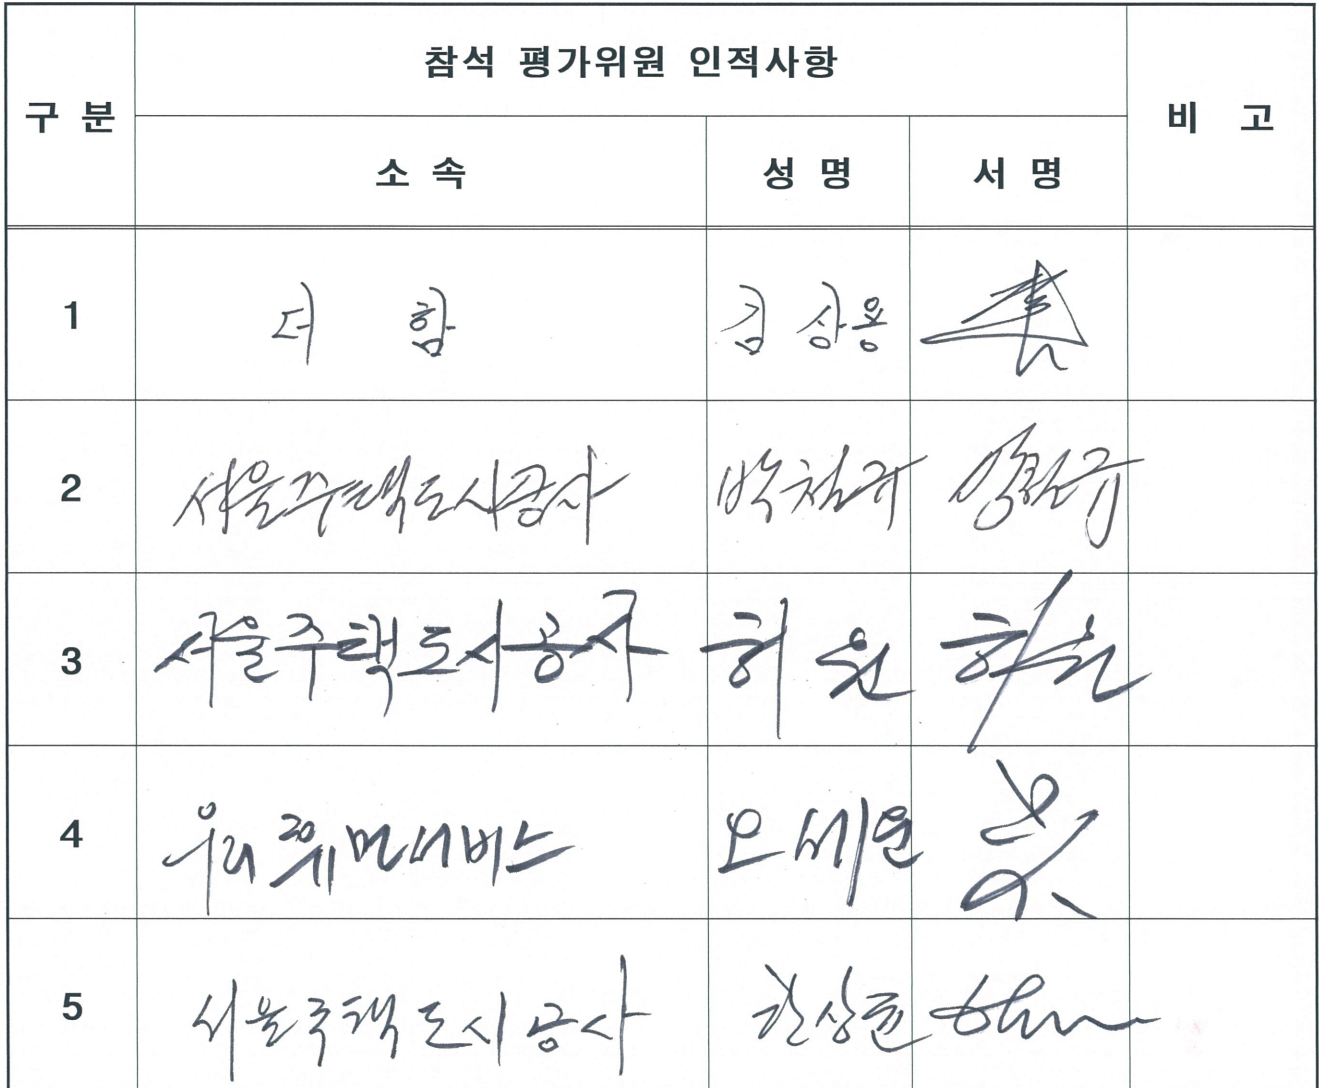 참석 평가위원 인적사항
구 분
비 고
소 속
성 명
서 명
1 더 함 김 상용
2 서울주택도시공사 박철규
3 서울주택도시공사 허 원 허원
4 우리 서비스 오세원
5 서울주택도시공사 한상윤